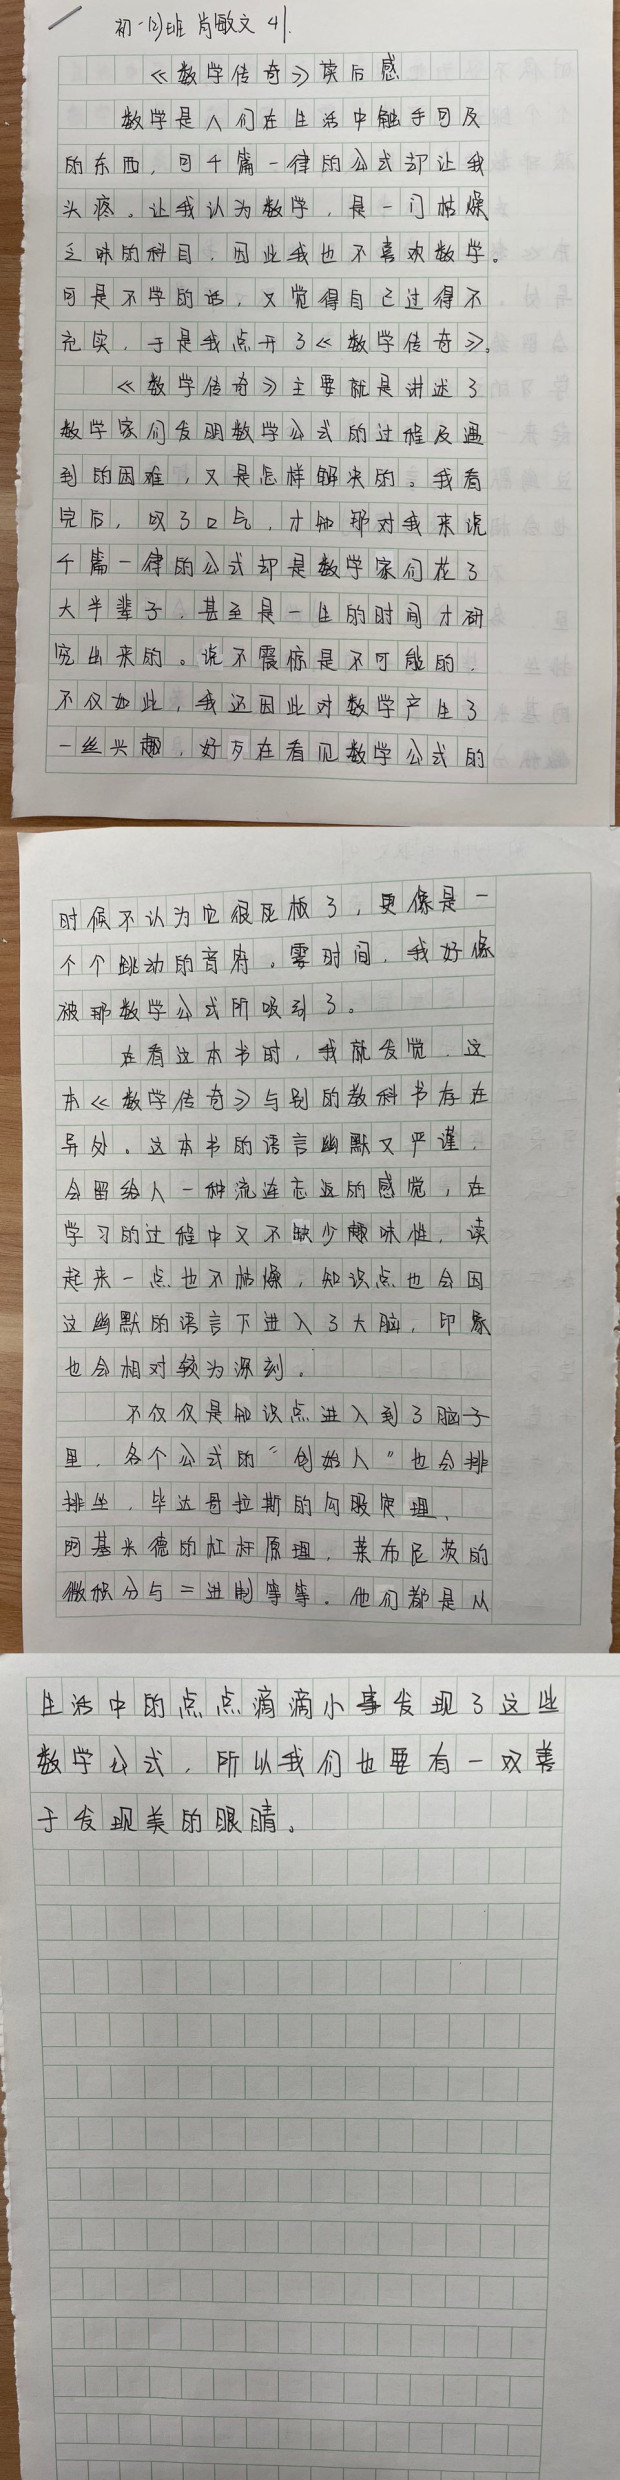 初一(2)班 肖敏文 41.
《数学传奇》读后感
数学是人们在生活中触手可及
的东西，可千篇一律的公式却让我
头疼。让我认为数学，是一门枯燥
乏味的科目，因此我也不喜欢数学。
可是不学的话，又觉得自己过得不
充实，于是我点开了《数学传奇》。
《数学传奇》主要就是讲述了
数学家们发明数学公式的过程及遇
到的困难，又是怎样解决的。我看
完后，叹了口气，才知那对我来说
千篇一律的公式却是数学家们花了
大半辈子，甚至是一生的时间才研
究出来的。说不震惊是不可能的，
不仅如此，我还因此对数学产生了
一丝兴趣，好歹在看见数学公式的
时候不认为它很死板了，更像是一
个个跳动的音府。霎时间，我好像
被那数学公式所吸引了。
在看这本书时，我就发觉，这
本《数学传奇》与别的教科书存在
异处。这本书的语言幽默又严谨，
会留给人一种流连忘返的感觉，在
学习的过程中又不缺少趣味性，读
起来一点也不枯燥，知识点也会因
这幽默的语言下进入了大脑，印象
也会相对较为深刻。
不仅仅是知识点进入到了脑子
里，各个公式的“创始人”也会排
排坐，毕达哥拉斯的勾股定理、
阿基米德的杠杆原理，莱布尼茨的
微积分与二进制等等。他们都是从
生活中的点点滴滴小事发现了这些
数学公式，所以我们也要有一双善
于发现美的眼睛。